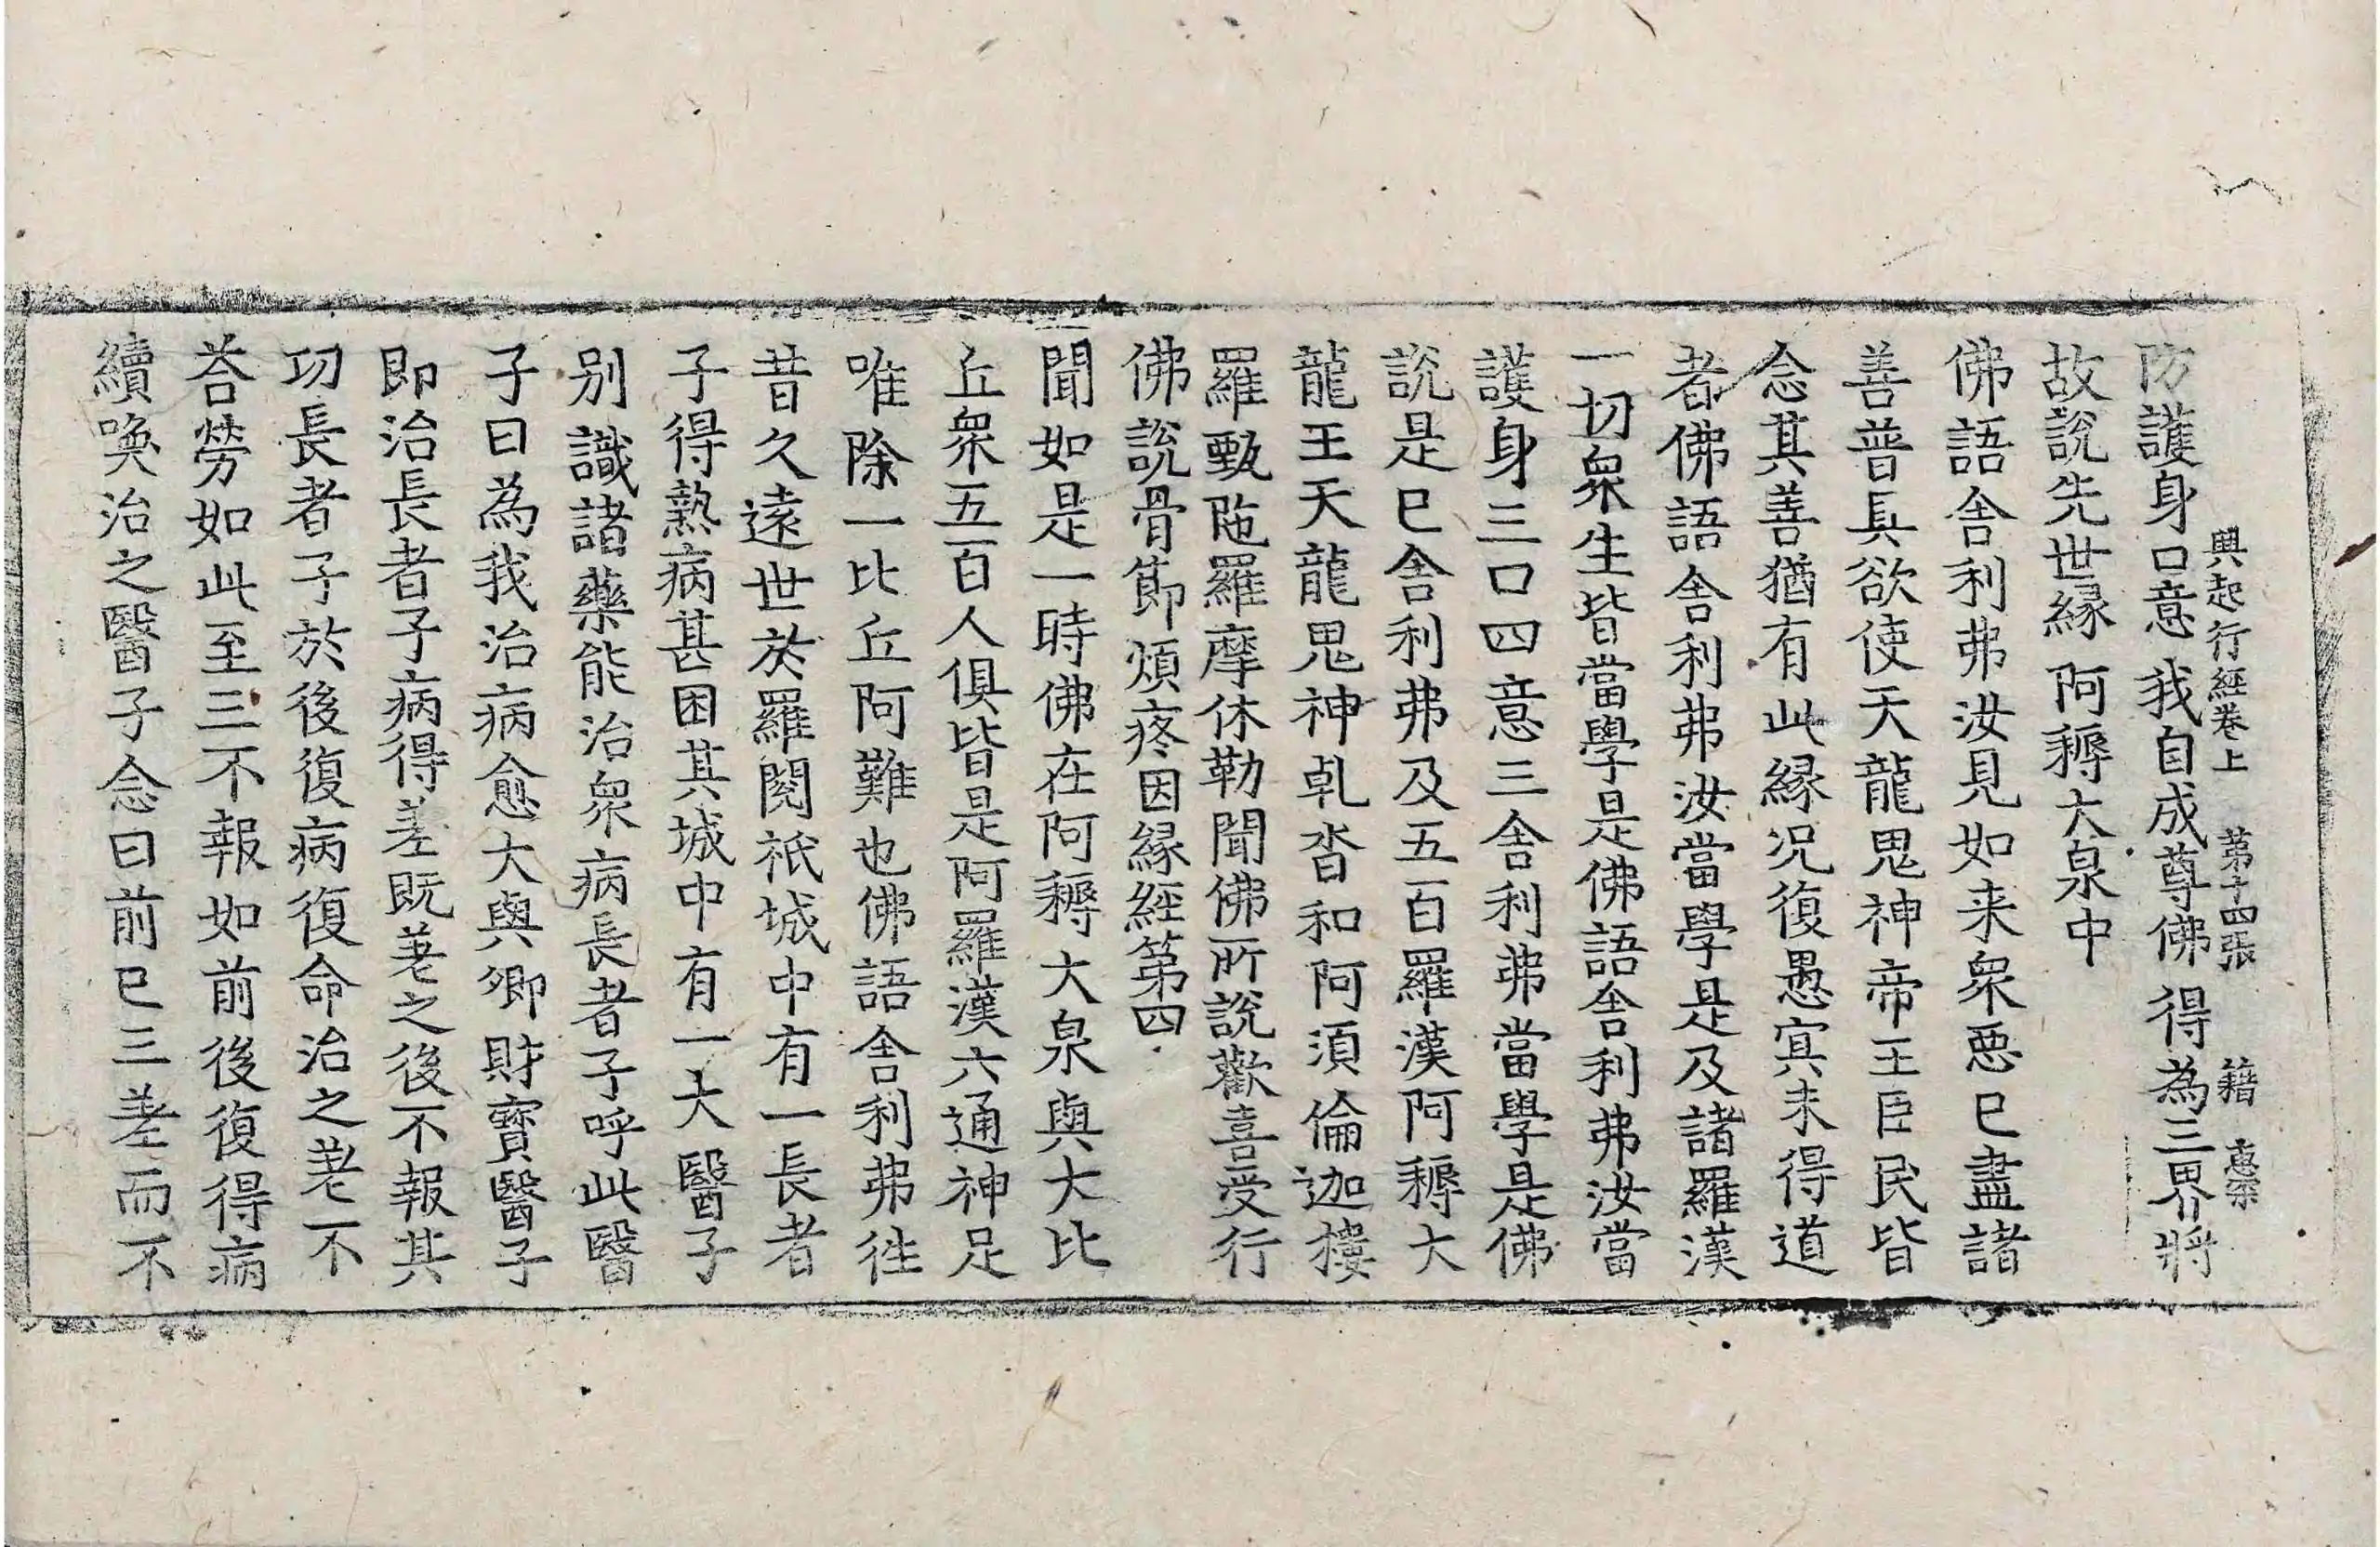 興起行經卷上 第十四張 籍 惠宗
防護身口意 我自成尊佛 得為三界將
故說先世緣 阿耨大泉中
佛語舍利弗汝見如来衆惡已盡諸
善普具欲使天龍鬼神帝王臣民皆
念其善猶有此緣况復愚冥未得道
者佛語舍利弗汝當學是及諸羅漢
一切衆生皆當學是佛語舍利弗汝當
護身三口四意三舍利弗當學是佛
說是已舍利弗及五百羅漢阿耨大
龍王天龍鬼神乹沓和阿須倫迦樓
羅甄陁羅摩休勒聞佛所說歡喜受行
佛說骨節煩疼因緣經第四
聞如是一時佛在阿耨大泉與大比
丘衆五百人俱皆是阿羅漢六通神足
唯除一比丘阿難也佛語舍利弗徃
昔久遠世於羅閱祇城中有一長者
子得熱病甚困其城中有一大醫子
別識諸藥能治衆病長者子呼此醫
子曰為我治病愈大與卿財寶醫子
即治長者子病得差既差之後不報其
功長者子於後復病復命治之差不
荅勞如此至三不報如前後復得病
續喚治之醫子念曰前已三差而不